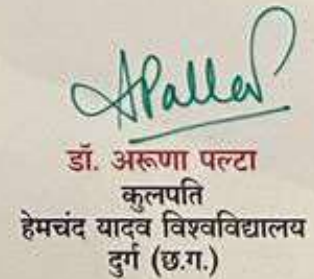 APalta
डॉ. अरूणा पल्टा
कुलपति
हेमचंद यादव विश्वविद्यालय
दुर्ग (छ.ग.)